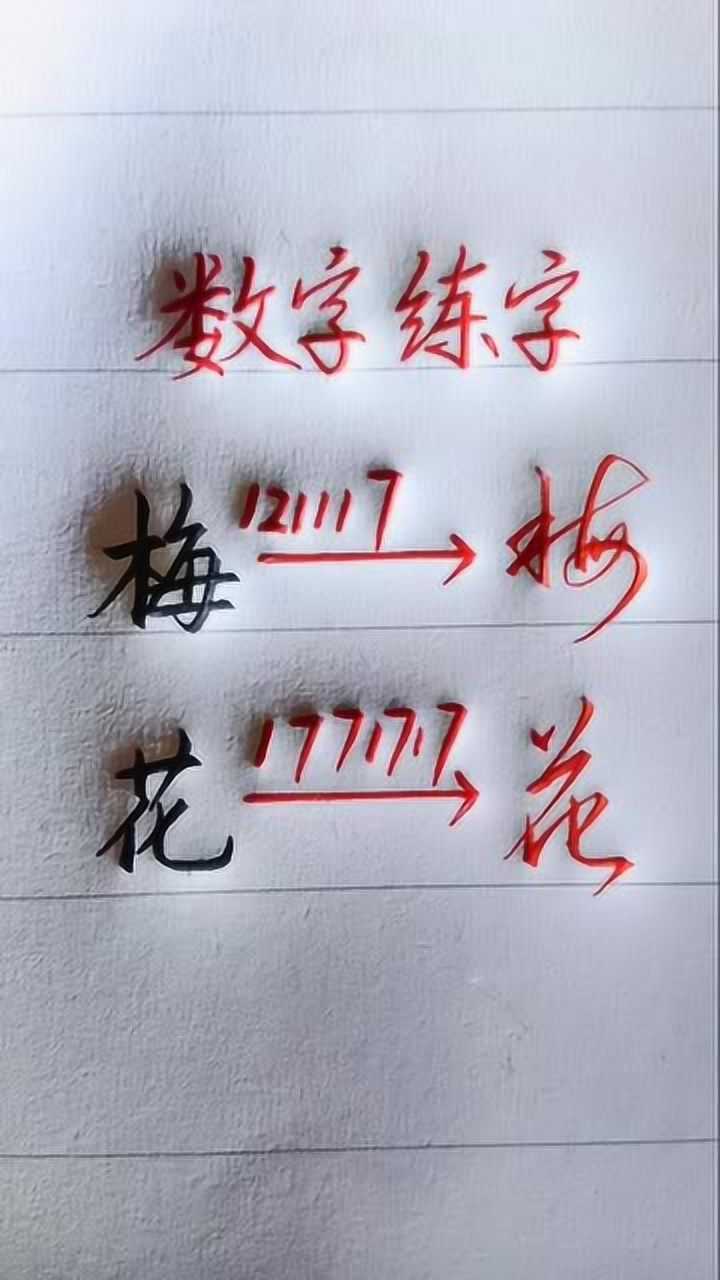 数字练字
梅 121117 → 梅
花 1771717 → 花